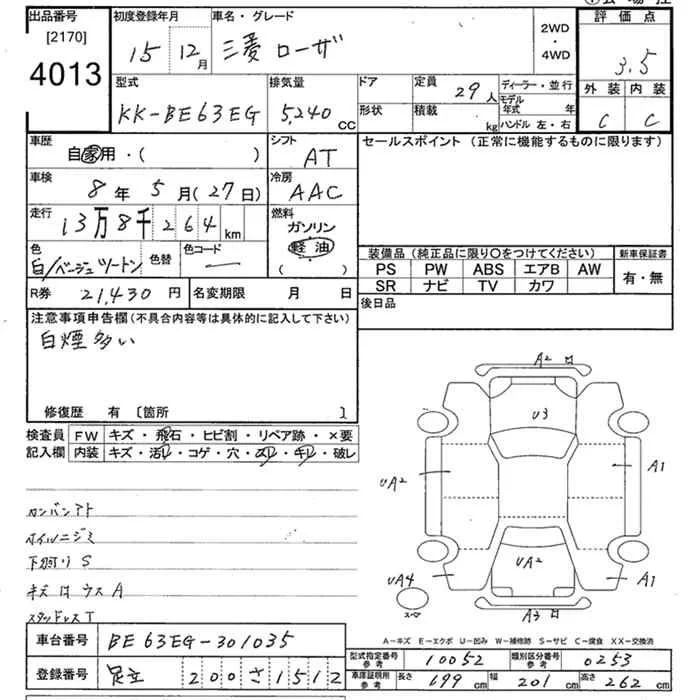 出品番号
[2170]
4013
初度登録年月
15 12月
車名・グレード
三菱 ローザ
2WD
・
4WD
評価点
3.5
外装 内装
C C
型式
KK-BE63EG
排気量
5,240 CC
ドア
形状
定員 29人
積載 kg
ディーラー・並行
モデル年式 年
ハンドル 左・右
車歴
自家用・( )
シフト
AT
セールスポイント (正常に機能するものに限ります)
車検
8年 5月(27日)
冷房
AAC
走行
13万8千264 km
燃料
ガソリン
軽油
( )
色
白/ベージュツートン
色替
色コード
—
装備品 (純正品に限り○をつけてください)
新車保証書
PS PW ABS エアB AW
SR ナビ TV カワ
有・無
R券 21,430円
名変期限 月 日
後日品
注意事項申告欄(不具合内容等は具体的に記入して下さい)
白煙多い
修復歴 有 〔箇所 〕
検査員記入欄
FW キズ・飛石・ヒビ割・リペア跡・×要
内装 キズ・汚レ・コゲ・穴・スレ・キレ・破レ
カンバンアト
ホイルニジミ
下廻りS
キズ凹ウスA
スタッドレスT
A2
U3
UA2
A1
UA2
UA4
A1
A3
A-キズ E-エクボ U-凹み W-補修跡 S-サビ C-腐食 XX-交換済
車台番号
BE63EG-301035
登録番号
足立 200さ1512
型式指定番号
参考
10052
類別区分番号
参考
0253
車庫証明用
参考
長さ 699 cm
幅 201 cm
高さ 262 cm